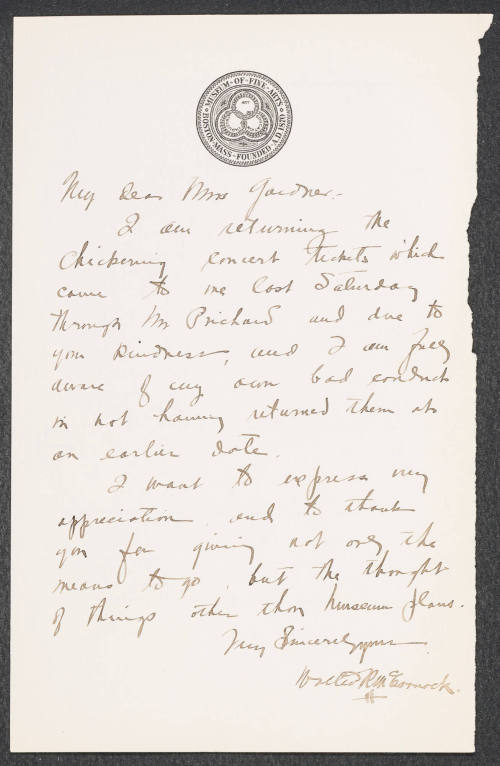 MUSEUM·OF·FINE·ARTS·
BOSTON·MASS·FOUNDED·A.D.1870
My dear Mrs Gardner.-
I am returning the
Chickering concert tickets which
came to me last Saturday
through Mr Prichard and due to
your kindness, and I am fully
aware of my own bad conduct
in not having returned them at
an earlier date.
I want to express my
appreciation and to thank
you for giving not only the
means to go, but the thought
of things other than Museum plans.
Very Sincerely yours
Walter R McCornack.